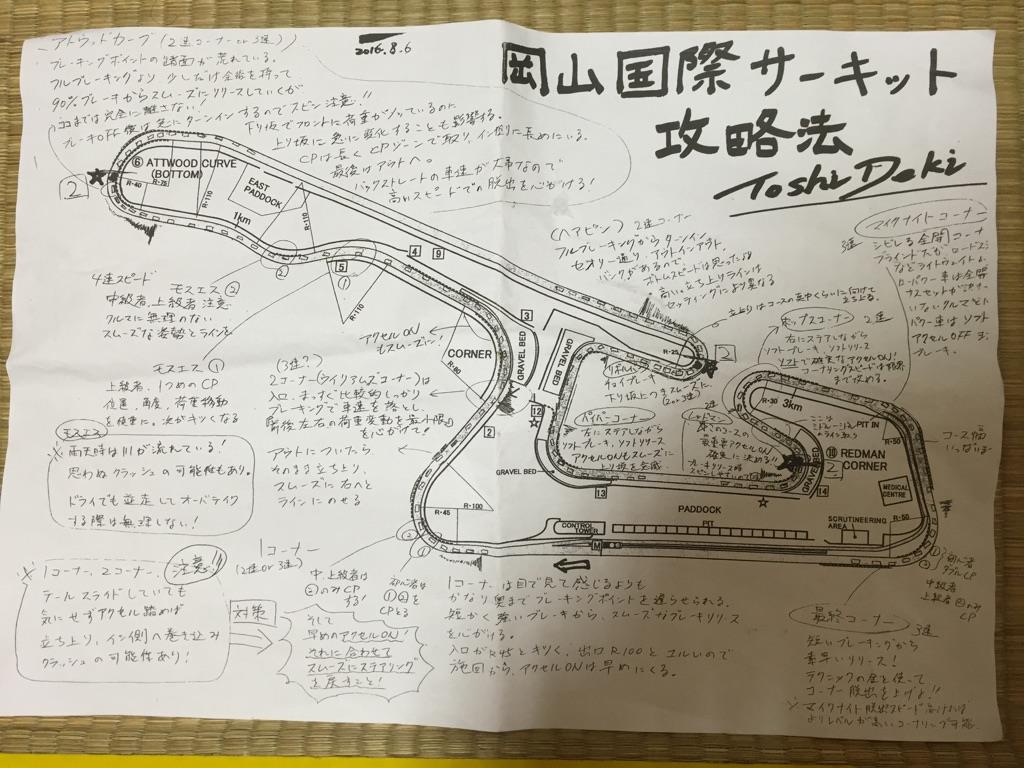 2016.8.6
岡山国際サーキット
攻略法
Toshi Deki
アトウッドカーブ(2速コーナー or 3速)
ブレーキングポイントの路面が荒れている。
フルブレーキングより少しだけ余裕を持って
90%ブレーキからスムーズにリリースしていくが
ココまでは完全に離さない!
ブレーキOFF後は急にターンインするのでスピン注意!!
下り坂でフロントに荷重がのっているのに
上り坂に急に変化することも影響する。
CPは長くCPゾーンで取り、イン側に長めにいる。
最後はアウトへ。
バックストレートの車速が大事なので
高いスピードでの脱出を心がける!
2
⑥ ATTWOOD CURVE
(BOTTOM)
R-40
R-75
R-110
EAST
PADDOCK
1km
R-110
②
5
①
R-110
4
9
3
4速スピード
モスエス②
中級者、上級者 注意
クルマに無理のない
スムーズな姿勢とラインを
モスエス①
上級者、1つめのCP
位置、角度、荷重移動
を慎重に。次がキツくなる
モスエス
※
雨天時は川が流れている!
思わぬクラッシュの可能性もあり。
ドライでも並走してオーバテイク
する際は無理しない!
アクセルON
もスムーズに!
(3速?)
2コーナー(ウイリアムズコーナー)は
入口、まっすぐ比較的しっかり
ブレーキングで車速を落とし、
『前後左右の荷重変動を最小限』
を心がけて!
アウトについたら
そのまま立ち上り、
スムーズに右へと
ラインにのせる
CORNER
R-60
GRAVEL BED
GRAVEL BED
2
12
GRAVEL BED
13
R-45
R-100
(ヘアピン) 2速コーナー
フルブレーキングからターンイン
セオリー通り、アウトインアウト。
バンクがあるので、
ボトムスピードは思ったより
高い 立ち上りラインは
セッティングにより異なる
立上りはコースの真中くらいに向けて
立ち上る。
R-25
2
リボルバー
チョイブレーキ
下り坂につきスムーズに
(2or3速)
パイパーコーナー
左にステアしながら
ソフトブレーキ、ソフトリリース
アクセルONもスムーズに
上り坂を全開
レッドマン
2速
ホップスコーナー
2速
右にステアしながら
ソフトブレーキ ソフトリリース
ソフトで確実なアクセルON!
コーナリングスピードは限界
まで攻める。
マイクナイトコーナー
3速
シビレる全開コーナー
などライトウェイト
ローパワー車は全開
パワー車はソフト
アクセルOFF
ブレーキ。
コース幅
R-30
3km
PIT IN
R-50
⑩ REDMAN
CORNER
2
GRAVEL BED
14
MEDICAL
CENTRE
R-50
PADDOCK
PIT
CONTROL
TOWER
SCRUTINEERING
AREA
M
②
①
①
②
初心者
ダブルCP
中級者
上級者 ②のみ
CP
※
1コーナー、2コーナー、注意!!
テールスライドしていても
気にせずアクセル踏めば
立ち上り、イン側へ巻き込み
クラッシュの可能性あり!
対策
そして
早めのアクセルON!
それに合わせて
スムースにステアリング
を戻すこと!
1コーナー
(2速or3速)
中、上級者は
②のみCP
する!
初心者は
①②を
CPとる
1コーナーは目で見て感じるよりも
かなり奥までブレーキングポイントを遅らせられる。
短かく強いブレーキから、スムーズなブレーキリリース
を心がける。
入口がR45とキツく、出口R100とユルいので
旋回から、アクセルONは早めにくる。
最終コーナー
3速
短いブレーキングから
素早いリリース!
テクニックの全を使って
コーナー脱出を上げよ!!
※ マイクナイト脱出スピード
よりレベルが高いコーナリング可能